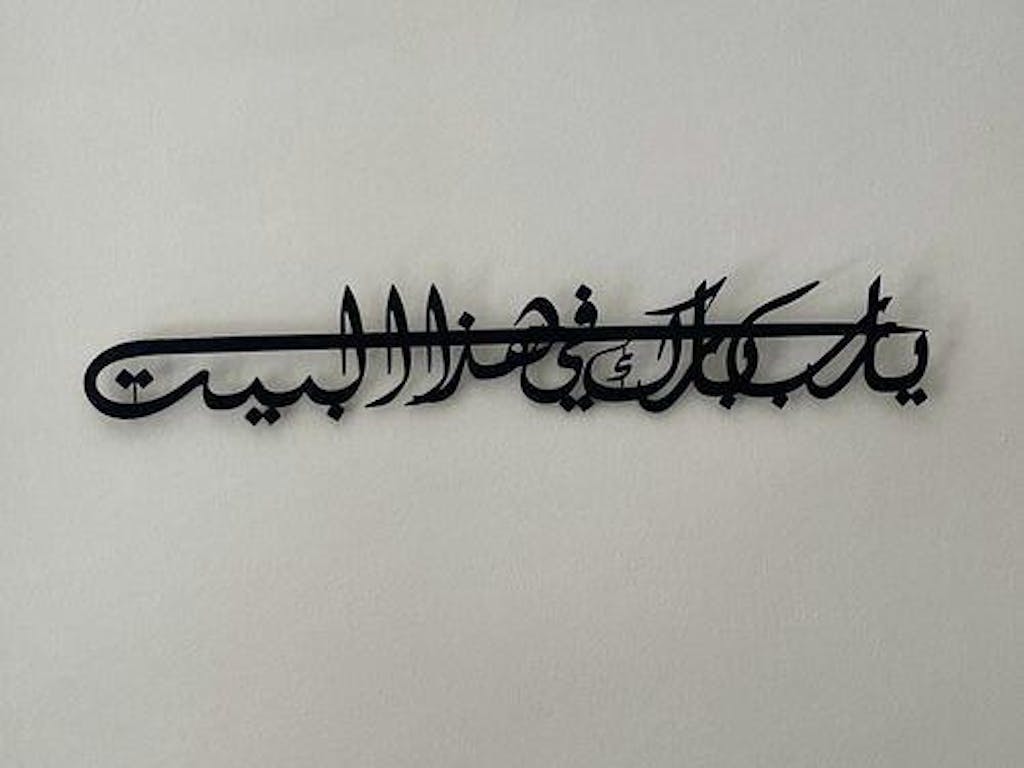 يارب بارك في هذا البيت